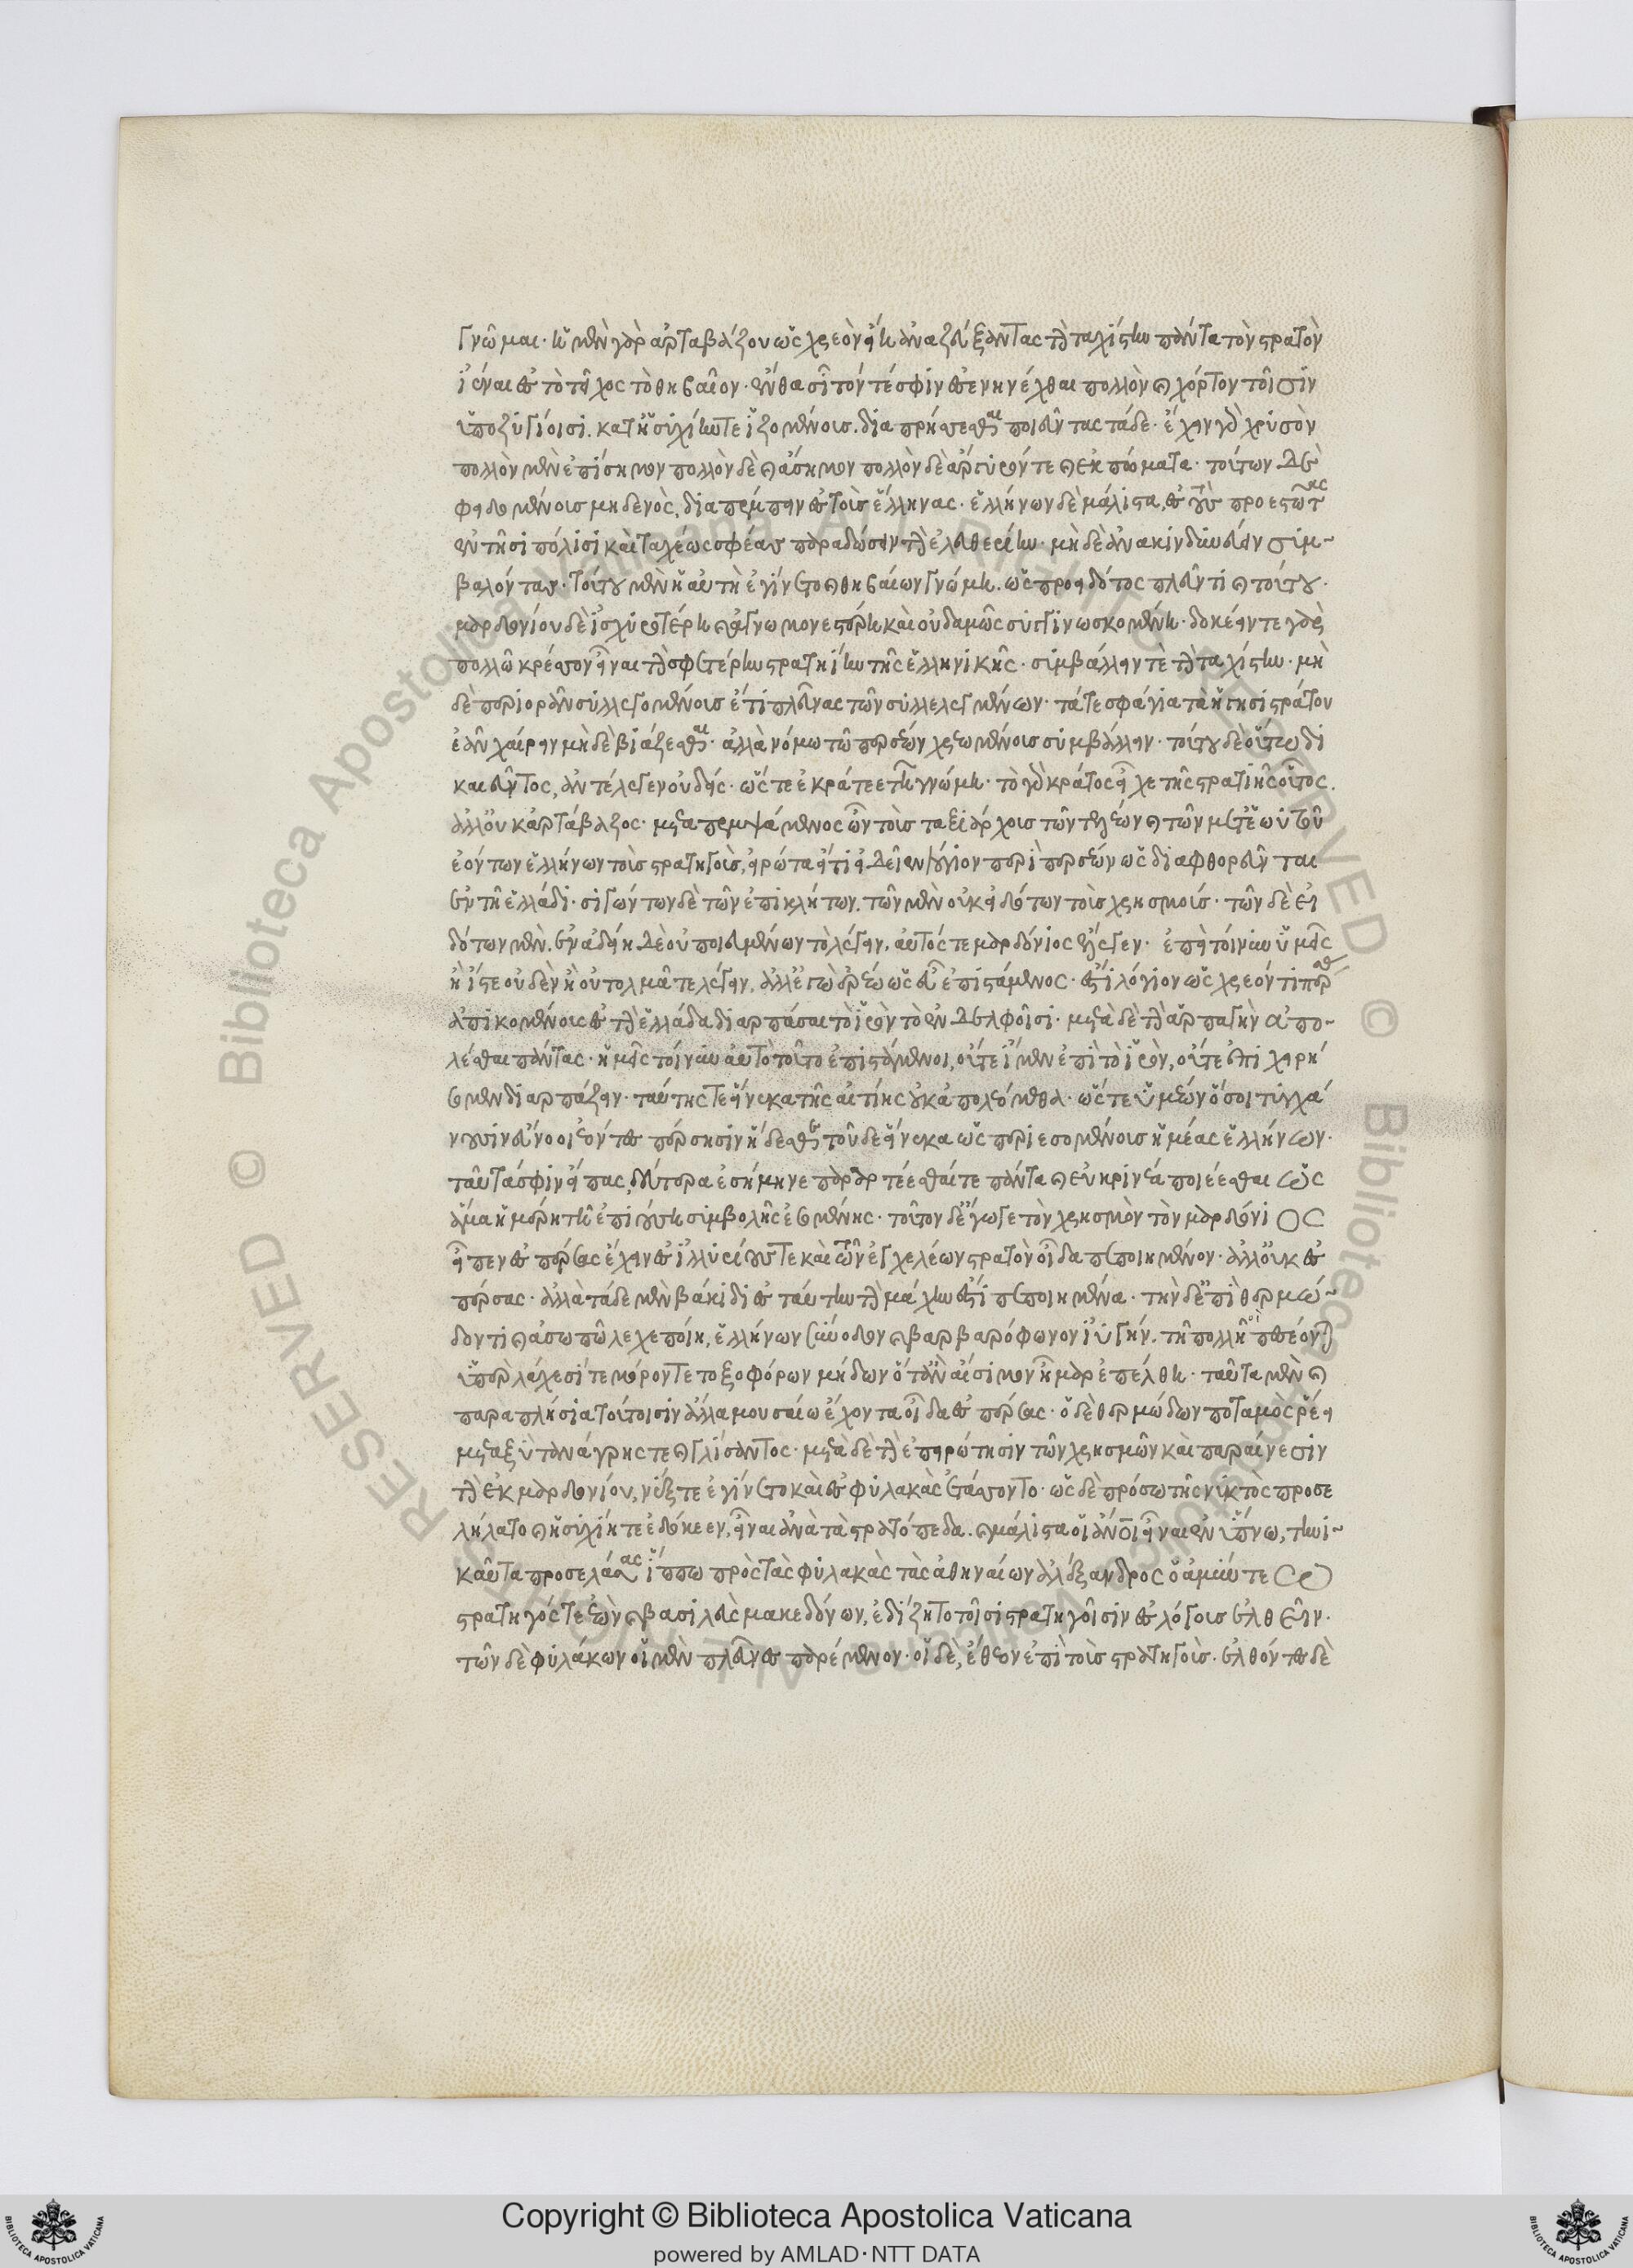 γνῶμαι· ἡ μὲν γὰρ ἀρταβάζου ὡς χρεὸν εἴη ἀναζεύξαντας τὴν ταχίστην πάντα τὸν στρατὸν
ἰέναι ἐς τὸ τεῖχος τὸ θηβαῖον· ἔνθα σῖτόν τέ σφιν ἐσενηνέχθαι πολλὸν καὶ χόρτον τοῖσιν
ὑποζυγίοισι. κατ' ἡσυχίην τε ἱζομένοις. διαπρήσσεσθαι ποιεῦντας τάδε· ἔχειν γὰρ χρυσὸν
πολλὸν μὲν ἐπίσημον πολλὸν δὲ καὶ ἄσημον πολλὸν δὲ ἄργυρόν τε καὶ ἐκπώματα· τούτων δὲ
φειδομένοις μηδενὸς, διαπέμπειν ἐς τοὺς ἕλληνας· ἑλλήνων δὲ μάλιστα, ἐς τοὺς προεστῶτας
ἐν τῇσι πόλισι καὶ ταχέως σφέας παραδώσειν τὴν ἐλευθερίην· μὴ δὲ ἀνακινδυνεύειν συμ-
βαλόντας· τούτου μὲν ἡ αὐτὴ ἐγίνετο καὶ θηβαίων γνώμη. ὡς προειδότος πλεῦν τι καὶ τούτου·
μαρδονίου δὲ ἰσχυροτέρη καὶ ἀγνωμονεστέρη καὶ οὐδαμῶς συγγινωσκομένη· δοκέειν τε γὰρ
πολλῷ κρέσσον εἶναι τὴν σφετέρην στρατηίην τῆς ἑλληνικῆς· συμβάλλειν τὲ τὴν ταχίστην· μὴ
δὲ περιορᾶν συλλεγομένοις ἔτι πλεῦνας τῶν συλλελεγμένων· τά τε σφάγια τὰ ἡγησιστράτου
ἐᾶν χαίρειν μὴ δὲ βιάζεσθαι· ἀλλὰ νόμω τῷ περσέων χρεωμένοις συμβάλλειν· τούτου δὲ οὕτω δι
καιεῦντος, ἀντέλεγεν οὐδείς· ὥστε ἐκράτεε τῇ γνώμῃ· τὸ γὰρ κράτος εἶχε τῆς στρατιῆς οὗτος.
ἀλλ' οὐκ ἀρτάβαζος· μεταπεμψάμενος ὦν τοὺς ταξιάρχους τῶν τελέων καὶ τῶν μετ' ἑωυτοῦ
ἐόντων ἑλλήνων τοὺς στρατηγοὺς, εἰρώτα εἴ τι εἰδεῖεν λόγιον περὶ περσέων ὡς διαφθορεῦνται
ἐν τῇ ἑλλάδι· σιγώντων δὲ τῶν ἐπικλήτων. τῶν μὲν οὐκ εἰδότων τοὺς χρησμούς· τῶν δὲ εἰ
δότων μὲν. ἐν ἀδείῃ δὲ οὐ ποιευμένων τὸ λέγειν, αὐτός τε μαρδόνιος ἔλεγεν· ἐπεὶ τοίνυν ὑμεῖς
ἢ ἴστε οὐδὲν ἢ οὐ τολμᾶτε λέγειν, ἀλλ' ἐγὼ ἐρέω ὡς εὖ ἐπιστάμενος· ἔστι λόγιον ὡς χρεόν τι πέρσας
ἀπικομένους ἐς τὴν ἑλλάδα διαρπάσαι τὸ ἱρὸν τὸ ἐν δελφοῖσι· μετὰ δὲ τὴν ἁρπαγὴν ἀπο-
λέσθαι πάντας· ἡμεῖς τοίνυν αὐτὸ τοῦτο ἐπιστάμενοι, οὔτε ἴμεν ἐπὶ τὸ ἱρὸν, οὔτε ἐπιχειρή
σομεν διαρπάζειν· ταύτης τε εἵνεκα τῆς αἰτίης οὐκ ἀπολεόμεθα· ὥστε ὑμέων ὅσοι τυγχά
νουσιν εὖνοοι ἐόντες πέρσησιν ἥδεσθε τοῦδε εἵνεκα ὡς περιεσομένους ἡμέας ἑλλήνων·
ταῦτά σφιν εἴπας, δεύτερα ἐσήμηνε παραρτέεσθαί τε πάντα καὶ εὐκρινέα ποιέεσθαι ὡς
ἅμα ἡμέρη τῇ ἐπιούση συμβολῆς ἐσομένης· τοῦτον δ' ἔγωγε τὸν χρησμὸν τὸν μαρδόνιος
εἶπεν ἐς πέρσας ἔχειν ἐς ἰλλυριούς τε καὶ τῶν ἐγχελέων στρατὸν οἶδα πεποιημένον· ἀλλ' οὐκ ἐς
πέρσας· ἀλλὰ τάδε μὲν βάκιδι ἐς ταύτην τὴν μάχην ἐστὶ πεποιημένα· τὴν δ' ἐπὶ θερμώ-
δοντι καὶ ἀσωπῷ λεχεποίη, ἑλλήνων σύνοδον καὶ βαρβαρόφωνον ἰυγήν. τῇ πολλοὶ πεσέονται
ὑπὲρ λάχεσίν τε μόρον τε τοξοφόρων μήδων ὅταν αἴσιμον ἦμαρ ἐπέλθη· ταῦτα μὲν καὶ
παραπλήσια τούτοισιν ἄλλα μουσαίω ἔχοντα οἶδα ἐς πέρσας· ὁ δὲ θερμώδων ποταμὸς ῥέει
μεταξὺ τανάγρης τε καὶ γλίσαντος· μετὰ δὲ τὴν ἐπειρώτησιν τῶν χρησμῶν καὶ παραίνεσιν
τὴν ἐκ μαρδονίου, νύξ τε ἐγίνετο καὶ ἐς φυλακὰς ἐτάσσοντο· ὡς δὲ πρόσω τῆς νυκτὸς προσε
λήλατο καὶ ἡσυχίη τε ἐδόκεεν, εἶναι ἀνὰ τὰ στρατόπεδα. καὶ μάλιστα οἱ ἄνοι εἶναι ἐν ὕπνω, τηνι-
καῦτα προσελάσας ἵππω πρὸς τὰς φυλακὰς τὰς ἀθηναίων ἀλέξανδρος ὁ ἀμύντεω
στρατηγός τε ἐὼν καὶ βασιλεὺς μακεδόνων, ἐδίζητο τοῖσι στρατηγοῖσιν ἐς λόγους ἐλθεῖν·
τῶν δὲ φυλάκων οἱ μὲν πλεῦνες παρέμενον· οἱ δὲ, ἔθεον ἐπὶ τοὺς στρατηγούς· ἐλθόντες δὲ